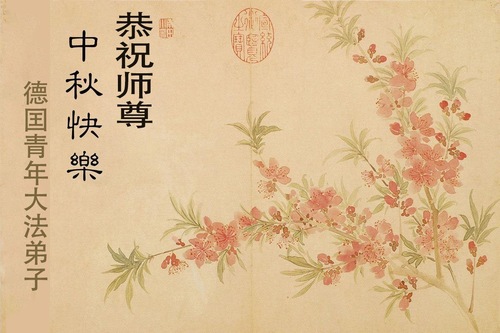 恭祝师尊
中秋快樂
德囯青年大法弟子